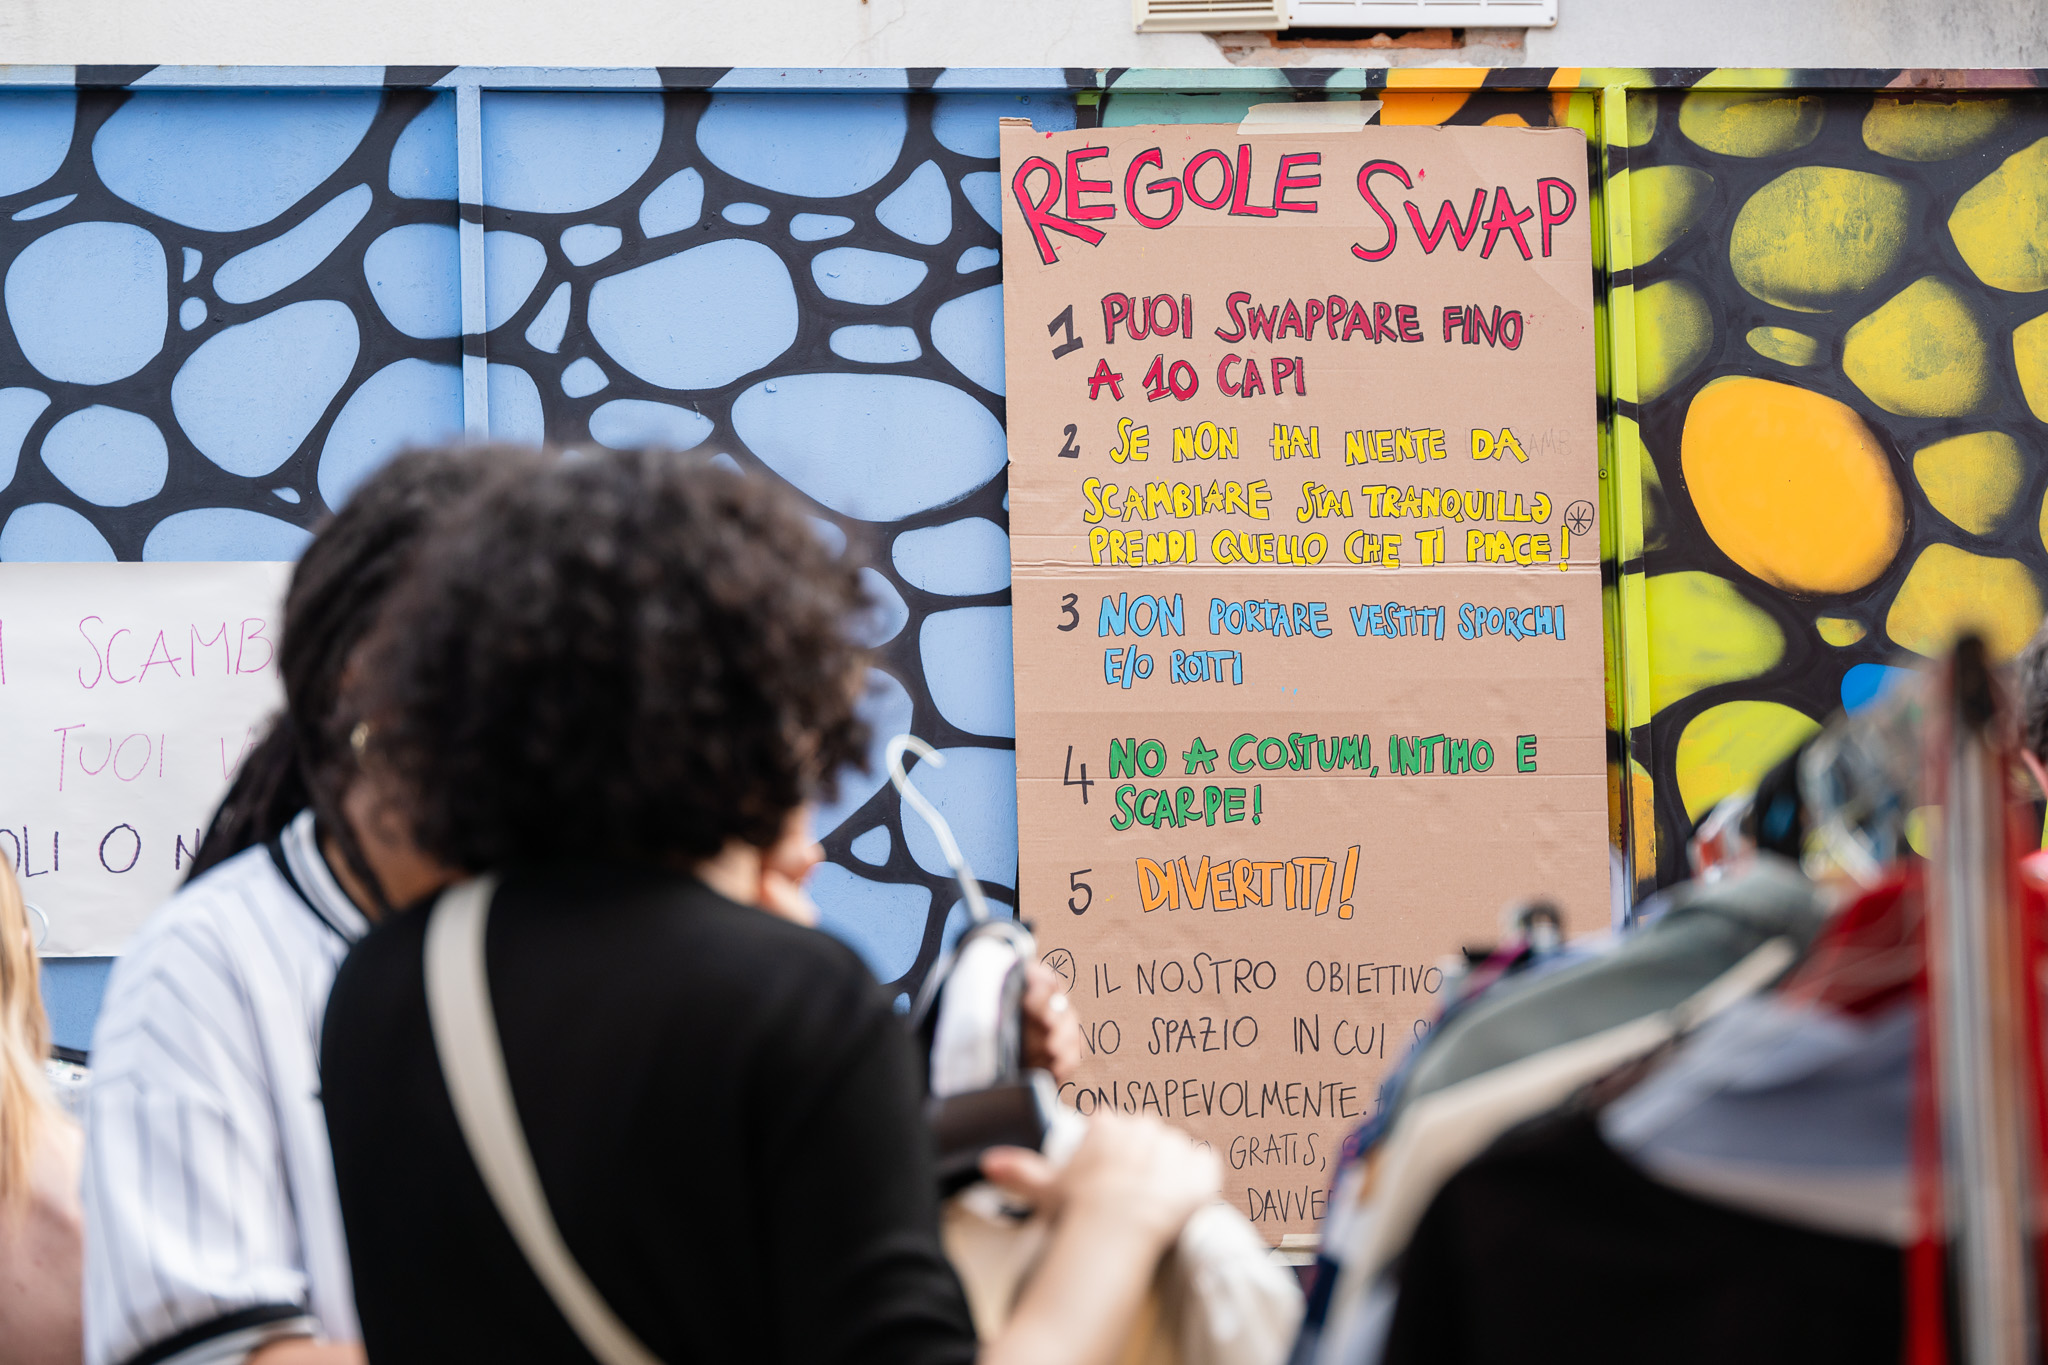 REGOLE SWAP
1 PUOI SWAPPARE FINO
A 10 CAPI
2 SE NON HAI NIENTE DA
SCAMBIARE STAI TRANQUILLƏ
PRENDI QUELLO CHE TI PIACE!
3 NON PORTARE VESTITI SPORCHI
E/O ROTTI
4 NO A COSTUMI, INTIMO E
SCARPE!
5 DIVERTITI!
IL NOSTRO OBIETTIVO
SPAZIO IN CUI
CONSAPEVOLMENTE.
GRATIS,
SCAMB
TUOI
O